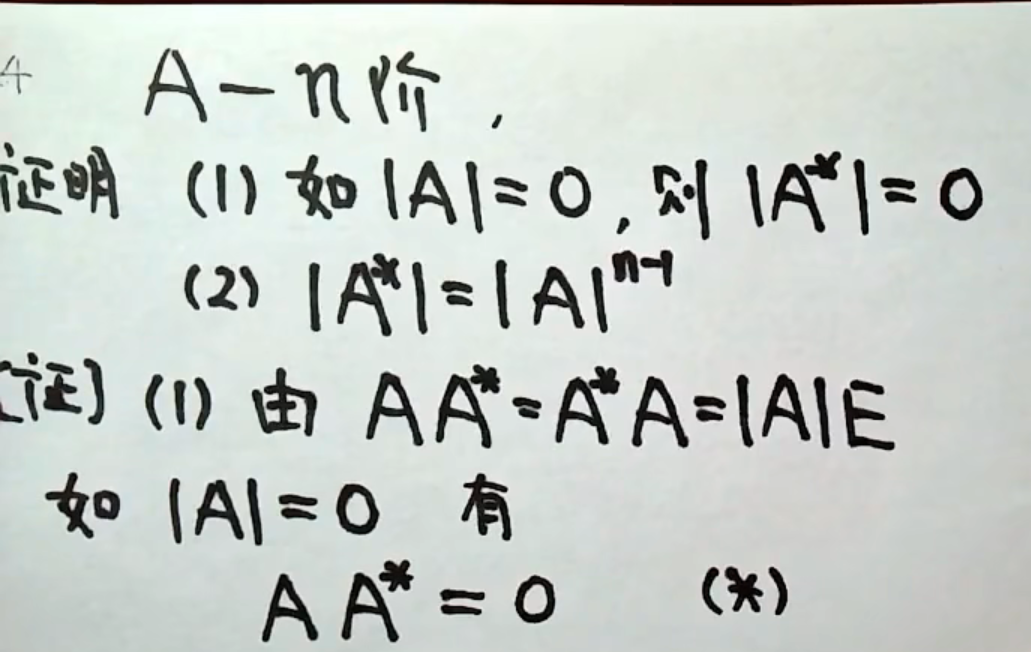 4 A - n阶,
证明 (1) 如 |A| = 0, 则 |A*| = 0
(2) |A*| = |A|ⁿ⁻¹
[证] (1) 由 AA* = A*A = |A|E
如 |A| = 0 有
AA* = 0 (*)